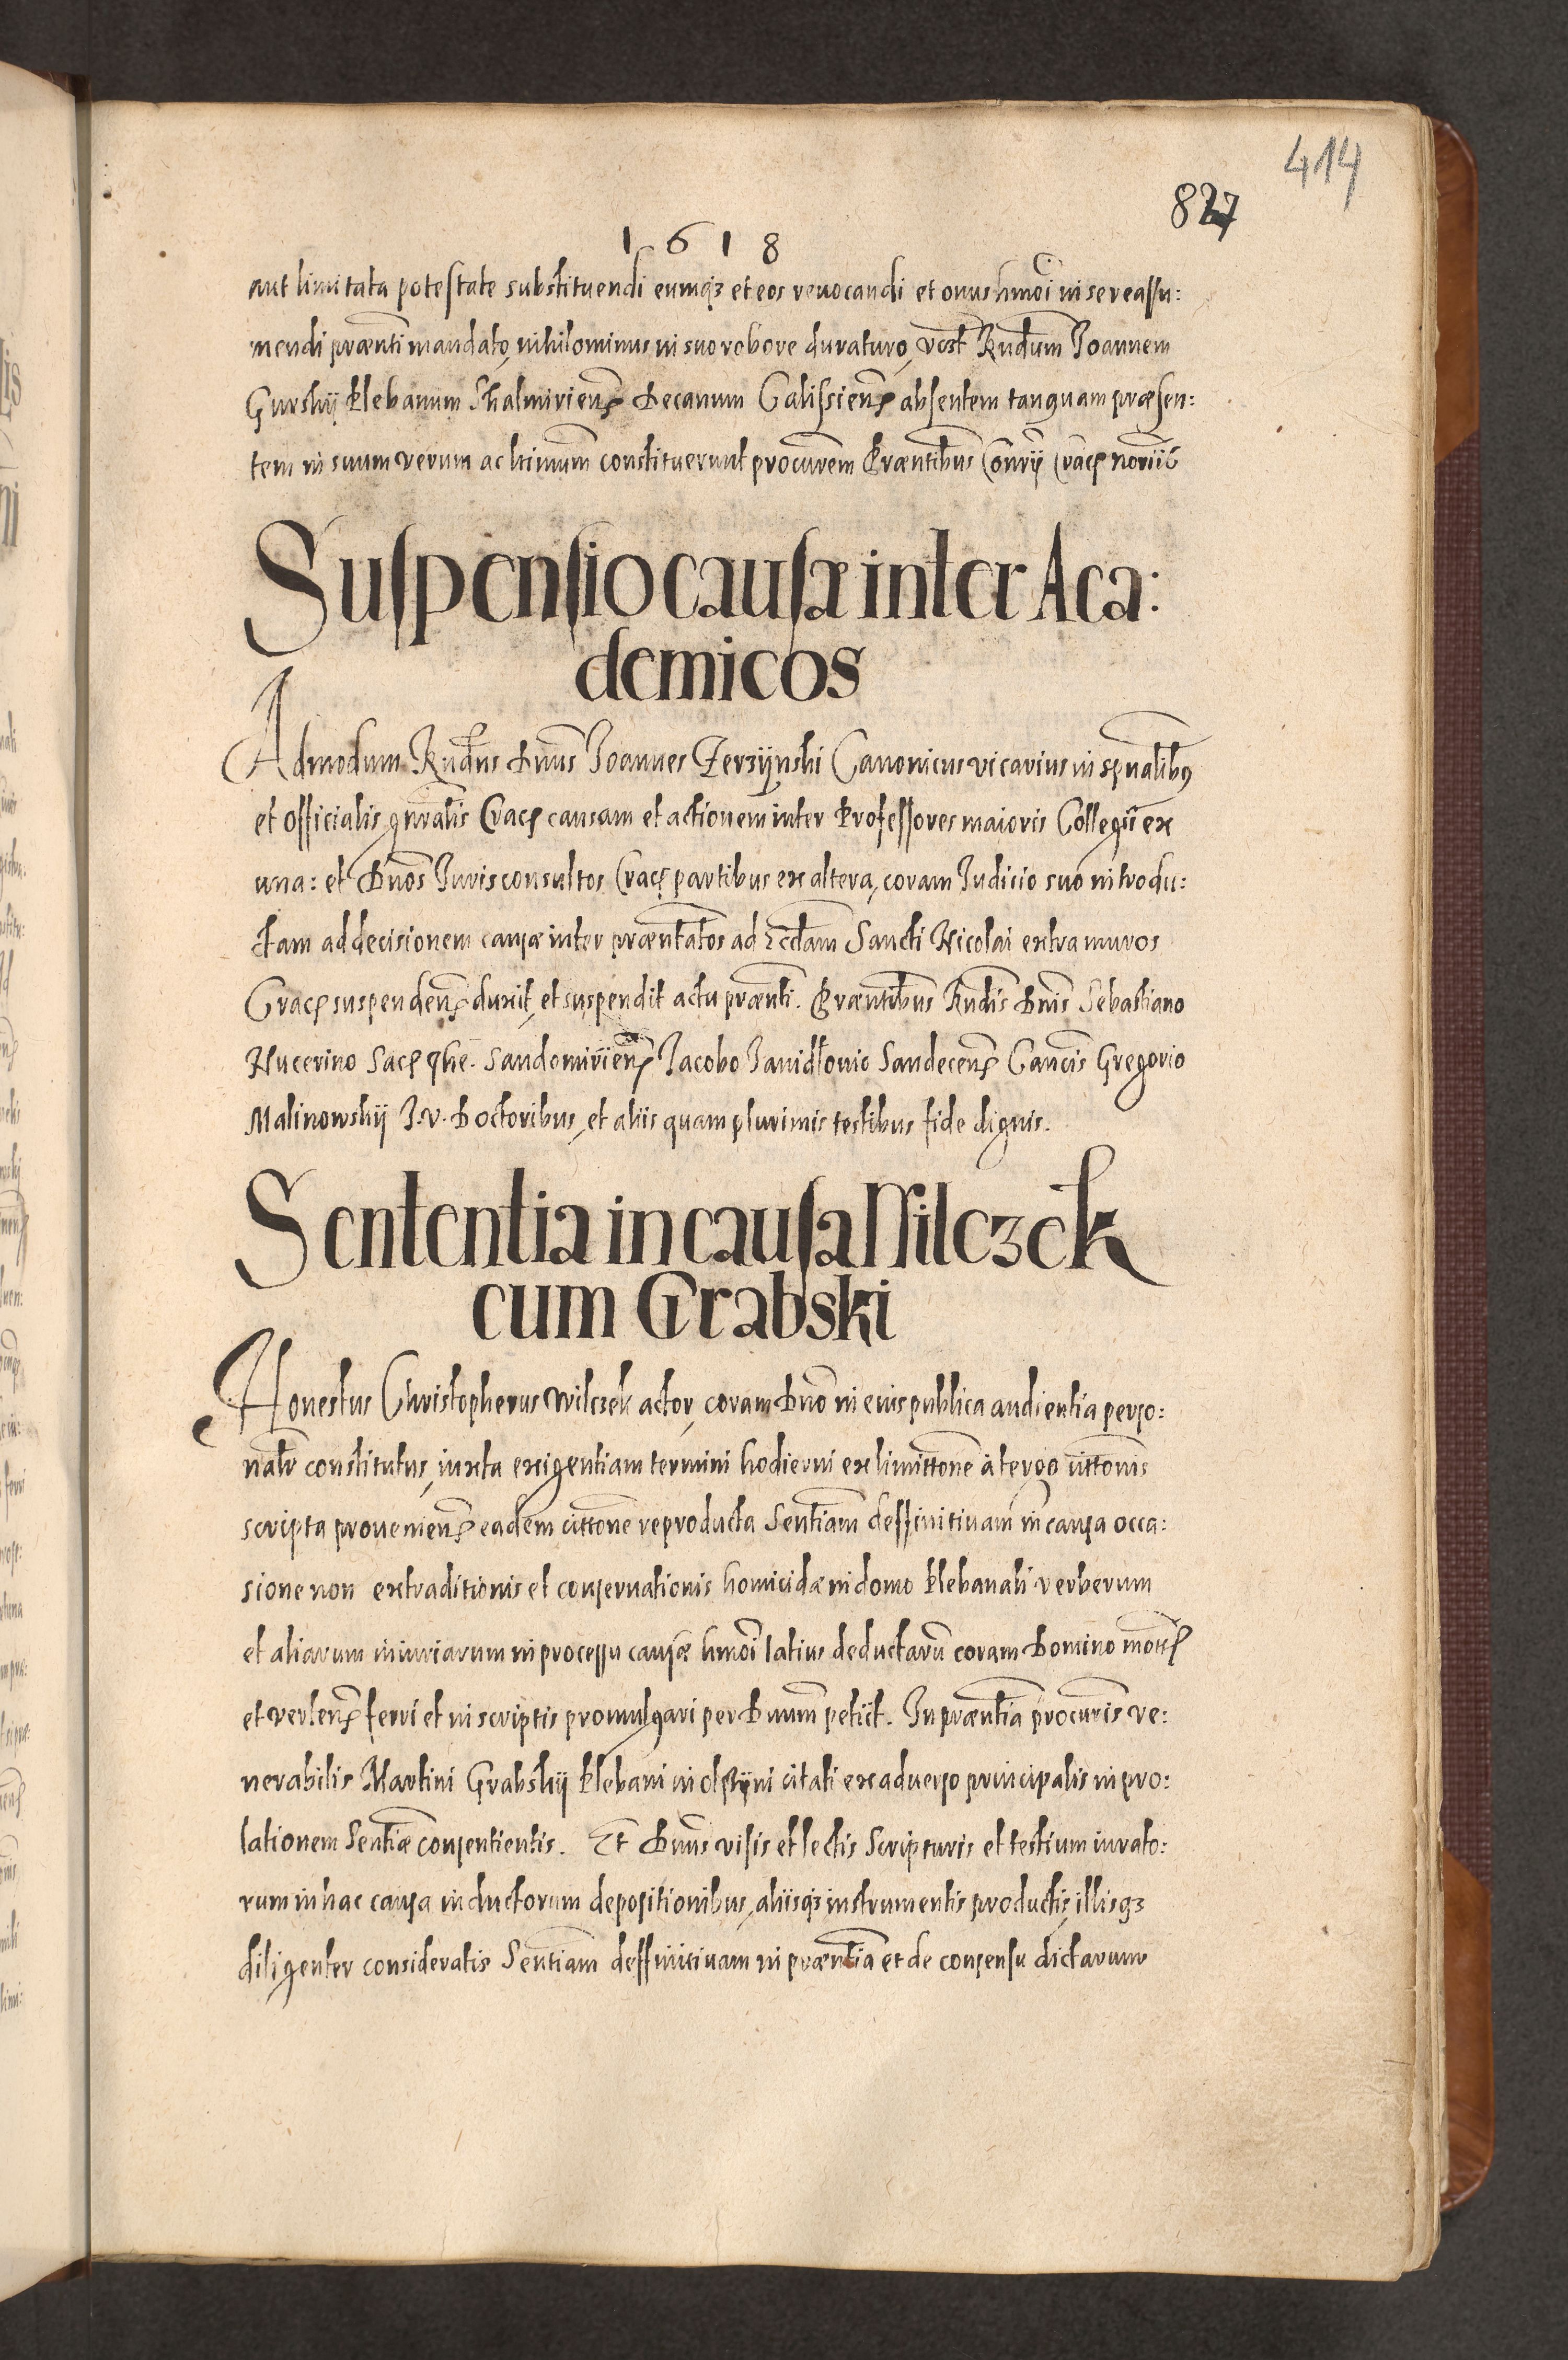 414
827
1618
aut limitata potestate substituendi eumq₃ et eos reuocandi et onus hmõi in se reassu:
mendi præsenti mandato, nihilominus in suo robore duraturo, vost Rndum Joannem
Gurskÿ Plebanum Skalmiriens Decanum Califsiens absentem tanquam præsen:
tem in suum verum ac ltimum constituerunt procurem Præntibus Cracs noriis
Suspensio causæ inter Aca:
demicos
Admodum Rndus Dnus Joannes Zerzÿnski Canonicus vicarius in spualibus
et officialis gnralis Cracs causam et actionem inter Professores maioris Collegii ex
una: et Dnos Jurisconsultos Cracs partibus ex altera, coram Judicio suo introdu:
ctam ad decisionem causæ inter præntatos ad Ecclam Sancti Nicolai extra muros
Cracs suspendens duxit, et suspendit actu prænti. Præntibus Rndis Dnis Sebastiano
Nucerino Sacs qhē. Sandomiriens Jacobo Janidlouic Sandecens Cancis Gregorio
Malinowskÿ J.V. Doctoribus, et aliis quam plurimis testibus fide dignis.
Sententia in causa Wilczek
cum Grabski
Honestus Christopherus Wilczek actor, coram Dno in eius publica audientia perso:
nalr constitutus, iuxta exigentiam termini hodierni ex limittone à tergo cittonis
scripta proueniens eadem cittone reproducta Sentiam deffinitiuam in causa occa:
sione non extraditionis et conseruationis homicidæ in domo Plebanali verberum
et aliarum iniuriarum in processu causæ hmõi latius deductarū coram Domino mots
et vertens ferri et in scriptis promulgari per Dnum petiit. In præntia procuris ve:
nerabilis Martini Grabskÿ Plebani in citati ex aduerso principalis in pro:
lationem Sentiæ consentientis. Et Dnus visis et lectis Scripturis et testium iurato:
rum in hac causa inductorum depositionibus, aliisq₃ instrumentis productis, illisq₃
diligenter consideratis Sentiam deffinitiuam in præntia et de consensu dictarum